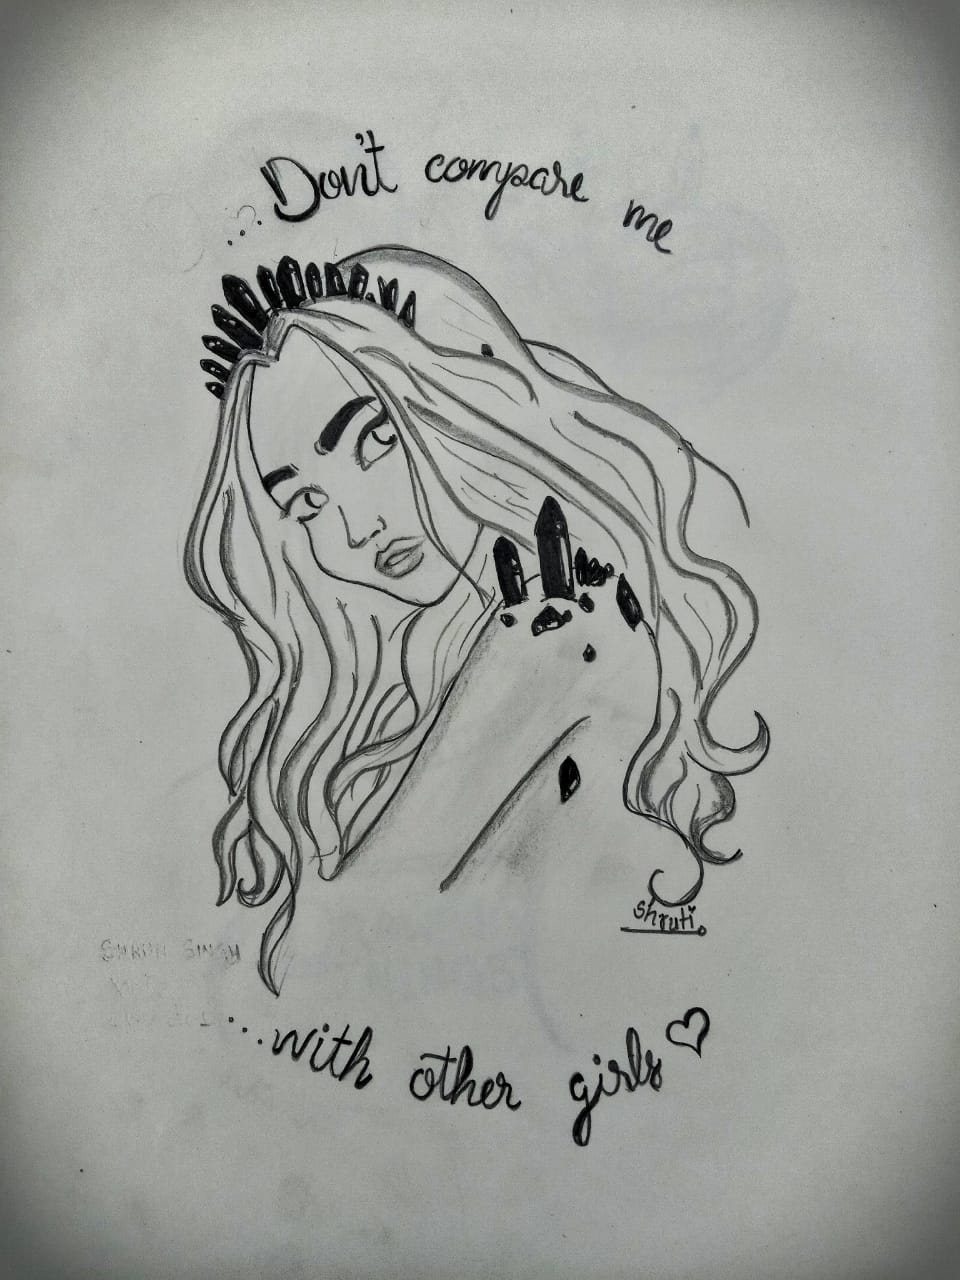 ...Don't compare me
shruti.
SINGH
...with other girls